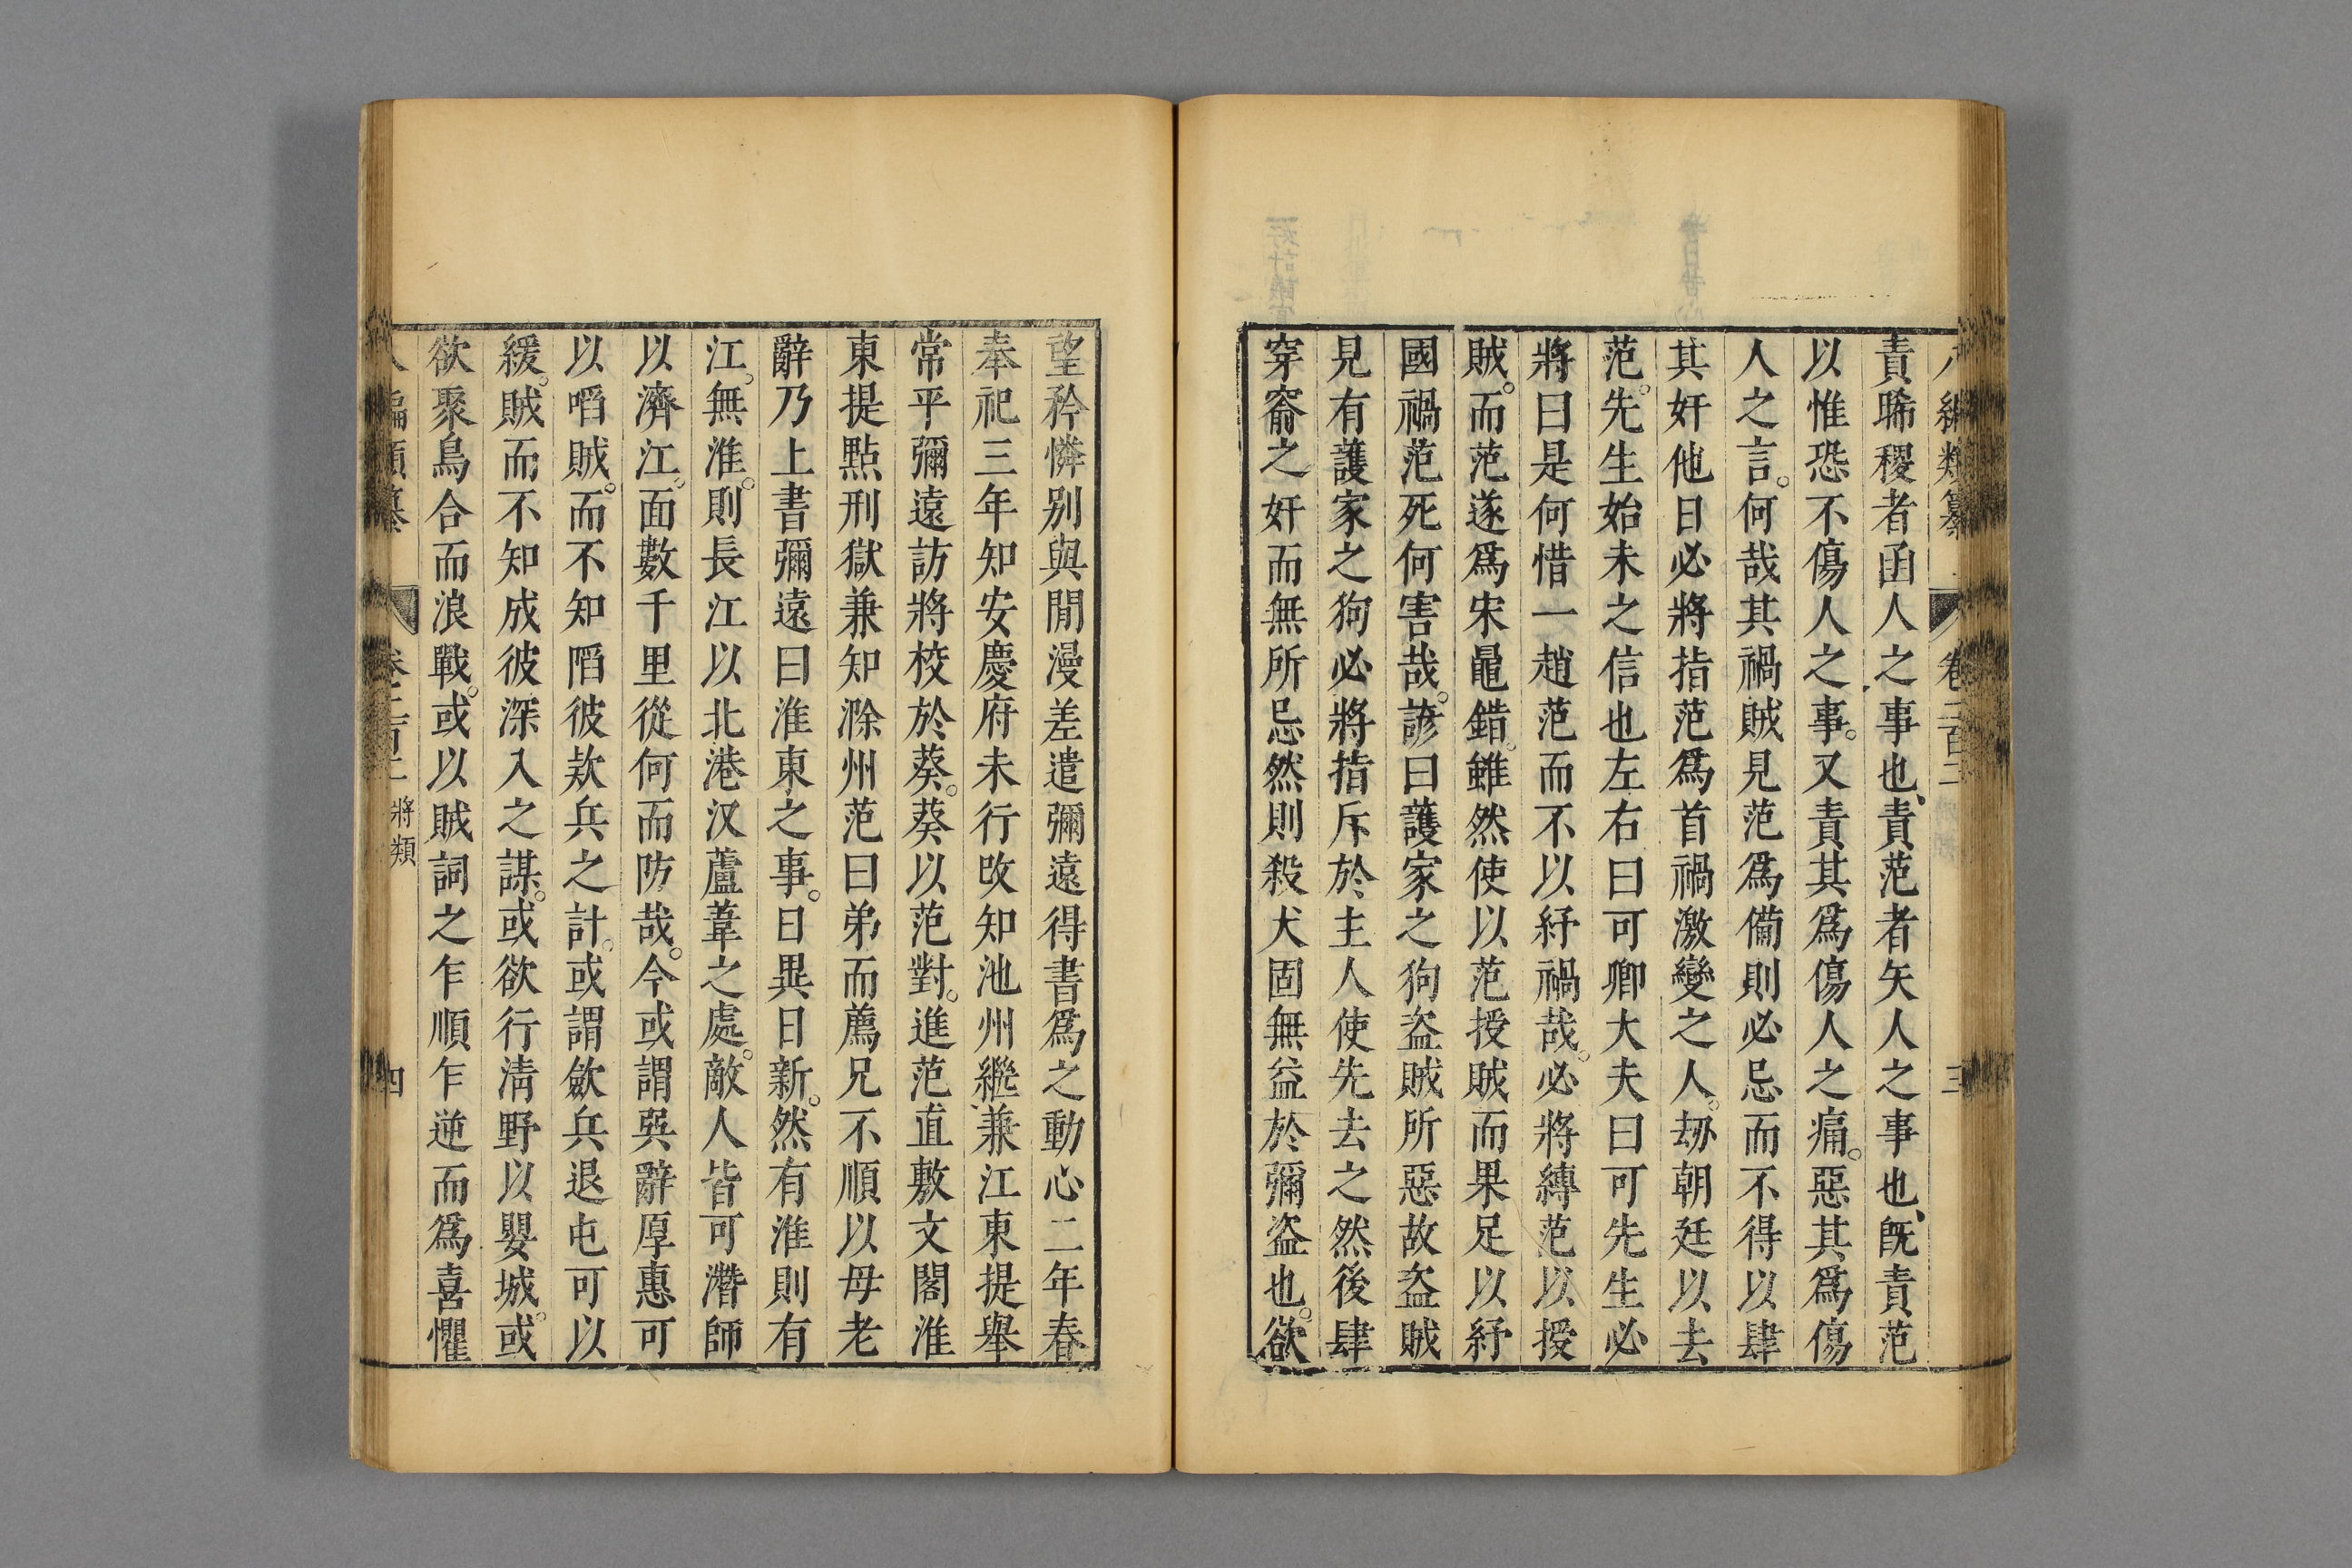 八編類纂 卷二百二 三
責睎稷者函人之事也責范者矢人之事也旣責范
以惟恐不傷人之事又責其爲傷人之痛惡其爲傷
人之言何哉其禍賊見范爲備則必忌而不得以肆
其奸他日必將指范爲首禍激變之人刼朝廷以去
范先生始未之信也左右曰可卿大夫曰可先生必
將曰是何惜一趙范而不以紓禍哉必將縛范以授
賊而范遂爲宋鼂錯雖然使以范授賊而果足以紓
國禍范死何害哉諺曰護家之狗盗賊所惡故盗賊
見有護家之狗必將指斥於主人使先去之然後肆
穿窬之奸而無所忌然則殺犬固無益於彌盗也欲
望矜憐别與閒漫差遣彌遠得書爲之動心二年春
奉祀三年知安慶府未行改知池州繼兼江東提舉
常平彌遠訪將校於葵葵以范對進范直敷文閣淮
東提點刑獄兼知滁州范曰弟而薦兄不順以母老
辭乃上書彌遠曰淮東之事日異日新然有淮則有
江無淮則長江以北港汊蘆葦之處敵人皆可潛師
以濟江面數千里從何而防哉今或謂巽辭厚惠可
以啗賊而不知䧟彼欵兵之計或謂歛兵退屯可以
緩賊而不知成彼深入之謀或欲行淸野以嬰城或
欲聚烏合而浪戰或以賊詞之乍順乍逆而爲喜懼
八編類纂 卷二百二 將類 四